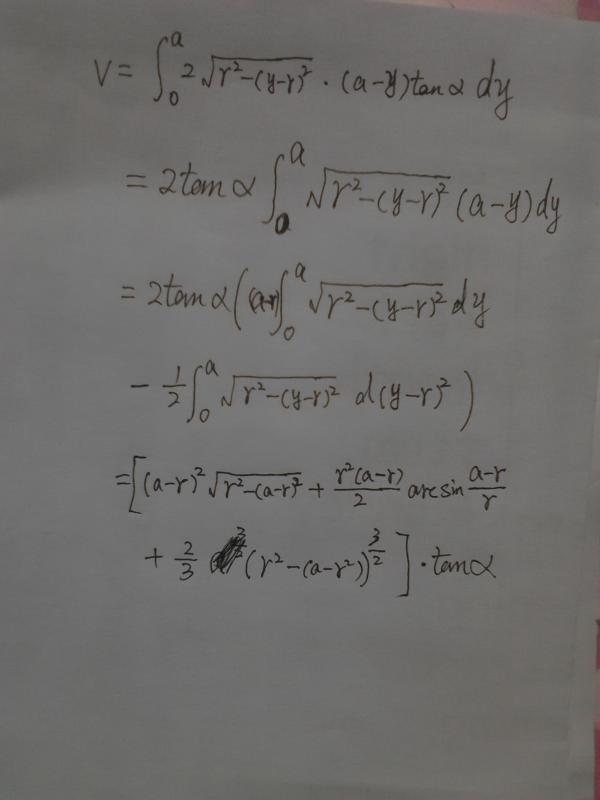 V = ∫₀ᵃ 2√(r²-(y-r)²) · (a-y)tanα dy
= 2tanα ∫₀ᵃ √(r²-(y-r)²) (a-y)dy
= 2tanα ( (a-r)∫₀ᵃ √(r²-(y-r)²) dy
- 1/2 ∫₀ᵃ √(r²-(y-r)²) d(y-r)² )
= [ (a-r)² √(r²-(a-r)²) + r²(a-r)/2 arcsin (a-r)/r
+ 2/3 (r²-(a-r²))^(3/2) ] · tanα